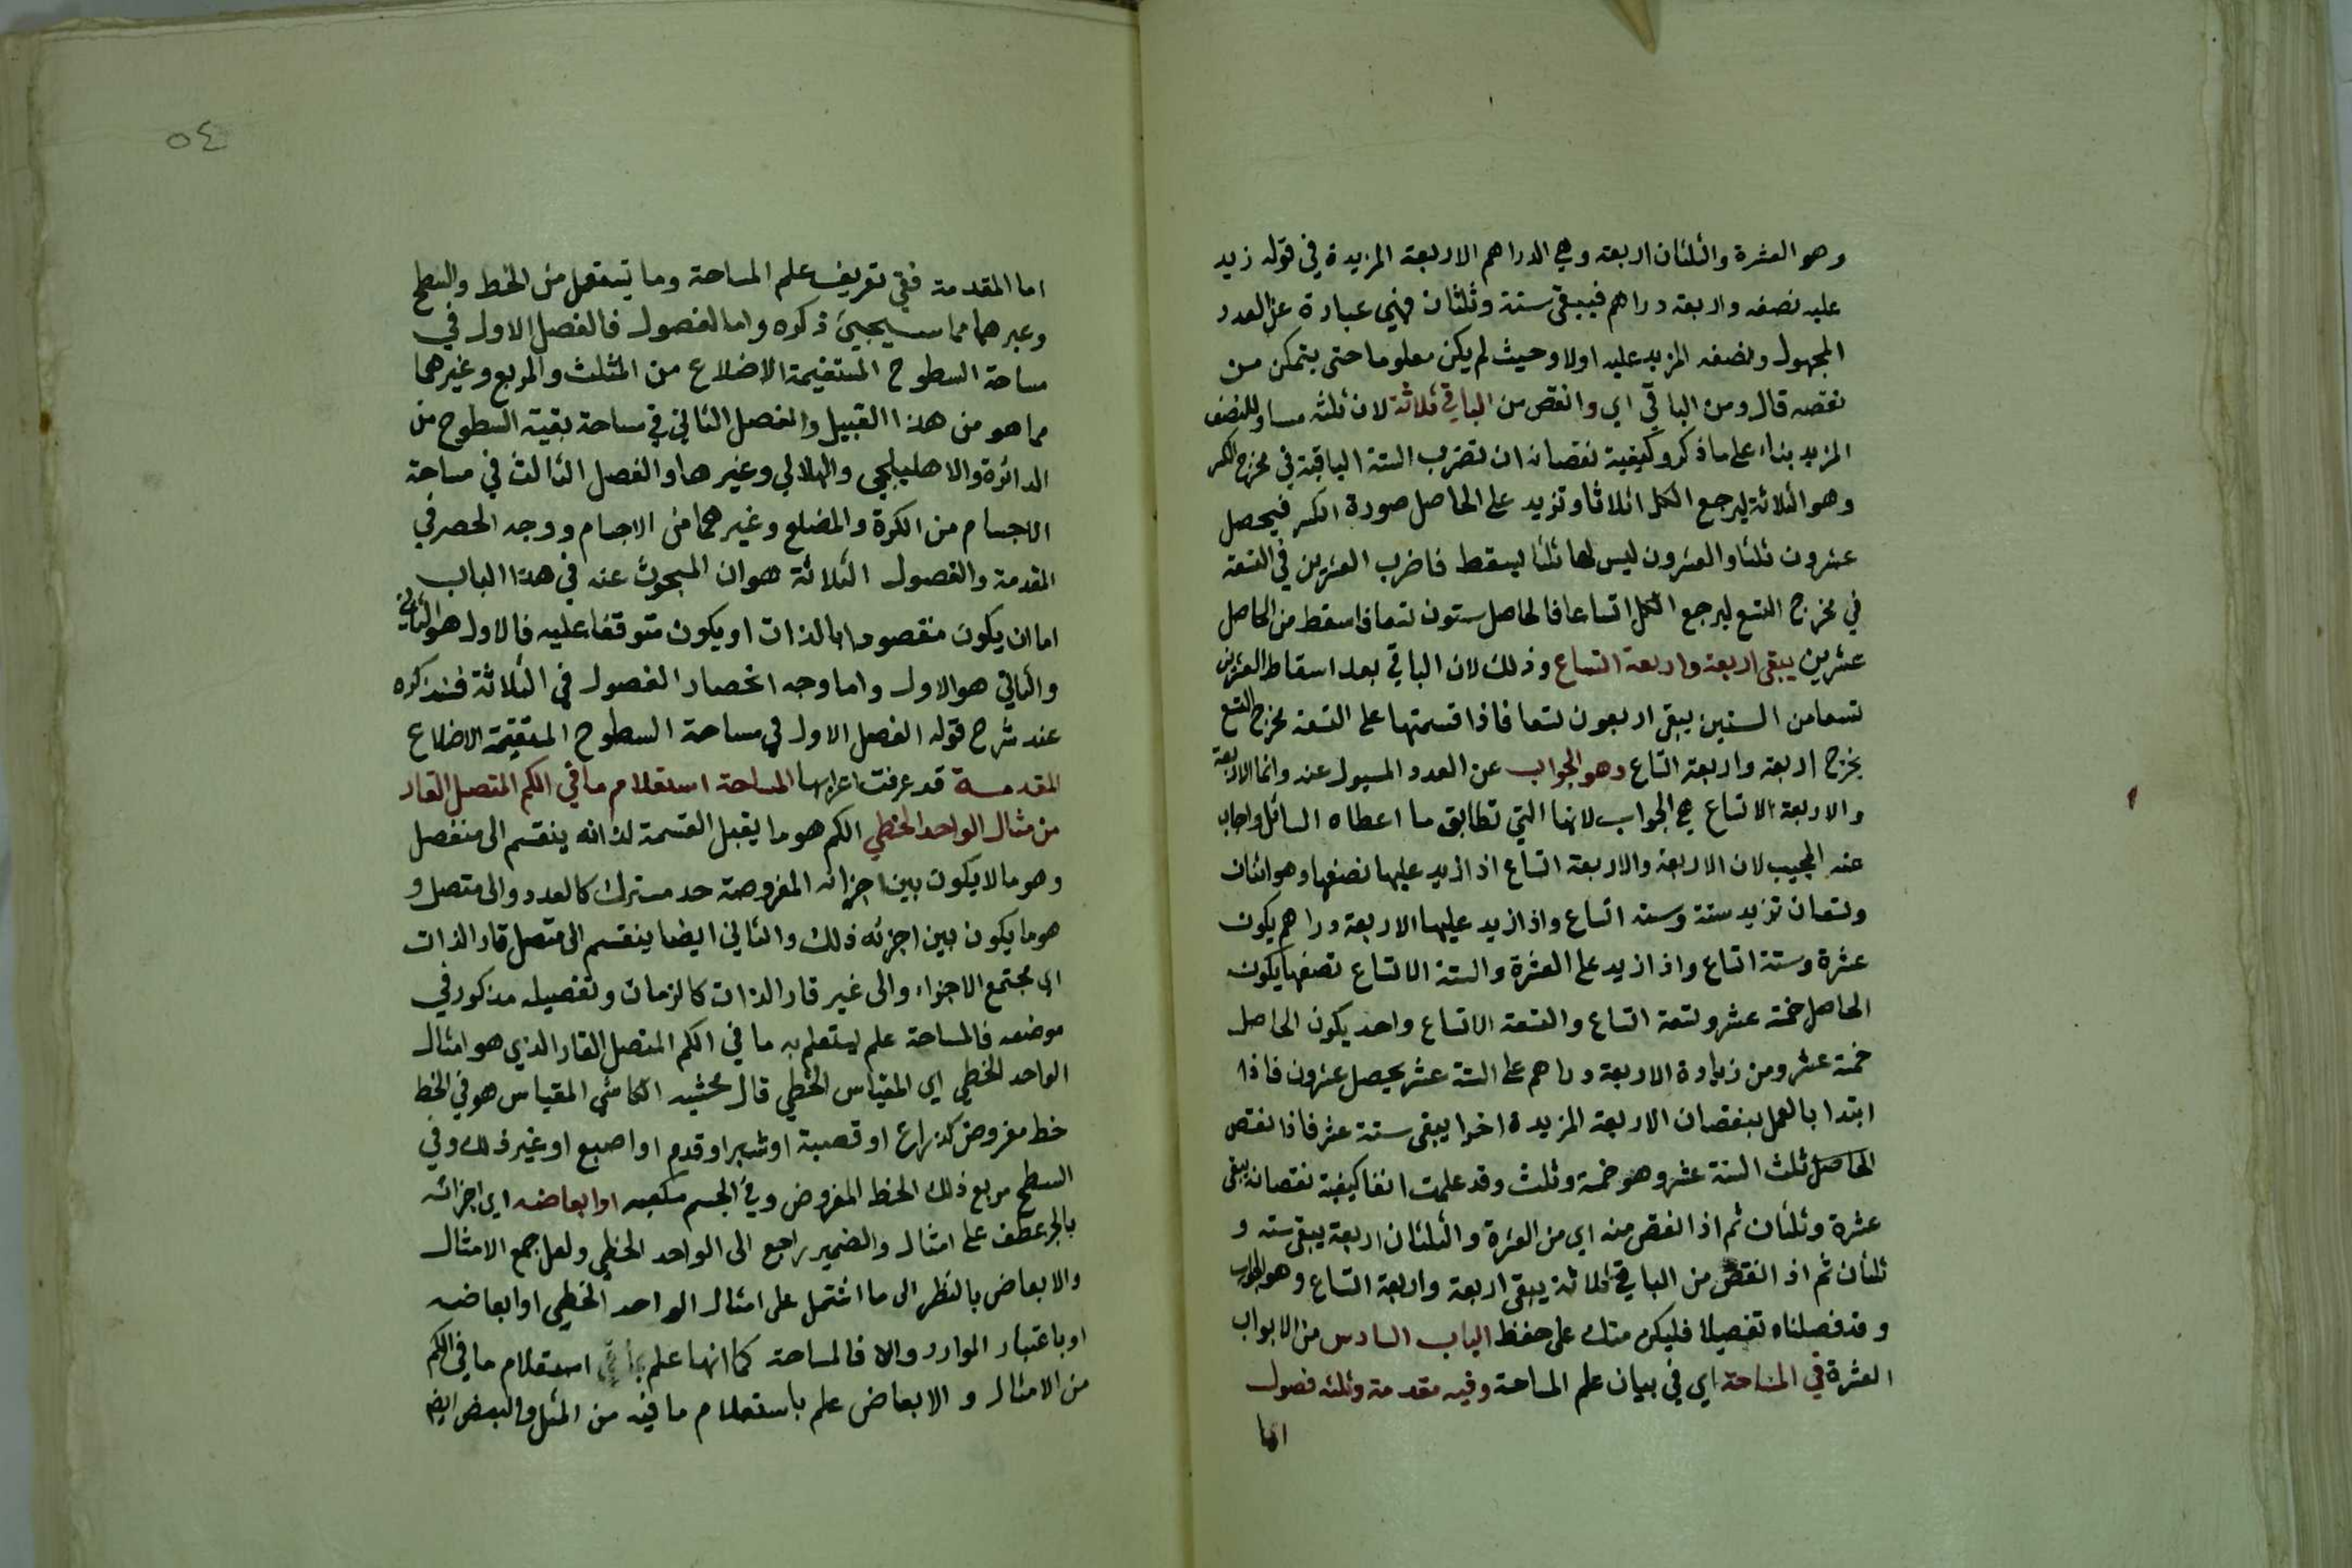 وهو العشرة والثلثان اربعة وهي الدراهم الاربعة المزيدة في قوله زيد
عليه نصفه واربعة دراهم فيبقى ستة وثلثان فهي عبارة عن العدد
المجهول ونصفه المزيد عليه اولا وحيث لم يكن معلوما حتى يتمكن من
نقصه قال ومن الباقي اي وانقص من الباقي ثلاثة لان ثلثه مساو للنصف
المزيد بناء على ما ذكر وكيفية نقصانه ان تضرب الستة الباقية في مخرج الكسر
وهو الثلاثة ليرجع الكل اثلاثا وتزيد على الحاصل صورة الكسر فيحصل
عشرون ثلثا والعشرون ليس لها ثلثا ليسقط فاضرب العشرين في التسعة
في مخرج التسع ليرجع الكل اتساعا فالحاصل ستون تسعا فاسقط من الحاصل
عشرين يبقى اربعة واربعة اتساع وذلك لان الباقي بعد اسقاط العشرين
تسعا من الستين يبقى اربعون تسعا فاذا قسمتها على التسعة مخرج التسع
يخرج اربعة واربعة اتساع وهو الجواب عن العدد المسيول عنه وانما الاربعة
والاربعة الاتساع هي الجواب لانها التي تطابق ما اعطاه السائل واجاب
عنه المجيب لان الاربعة والاربعة اتساع اذا زيد عليها نصفها وهو اثنان
وتسعان تزيد ستة وستة اتساع واذا زيد عليها الاربعة دراهم يكون
عشرة وستة اتساع واذا زيد على العشرة والستة الاتساع نصفها يكون
الحاصل خمسة عشر وتسعة اتساع والتسعة الاتساع واحد يكون الحاصل
خمسة عشر ومن زيادة الاربعة دراهم على الستة عشر يحصل عشرون فاذا
ابتدا بالعمل بنقصان الاربعة المزيدة اخرا يبقى ستة عشر فاذا نقص
الحاصل ثلث الستة عشر وهو خمسة وثلث وقد علمت انفا كيفية نقصانه يبقى
عشرة وثلثان ثم اذا نقص منه اي من العشرة والثلثان اربعة يبقى ستة و
ثلثان ثم اذا انقص من الباقي ثلاثة يبقى اربعة واربعة اتساع وهو الجواب
وقد فصلناه تفصيلا فليكن منك على حفظ الباب السادس من الابواب
العشرة في المساحة اي في بيان علم المساحة وفيه مقدمة وثلثة فصول
اما
٥٤
اما المقدمة ففي تعريف علم المساحة وما يستعمل من الخط والسطح
وغيرهما مما سيجيئ ذكره واما الفصول فالفصل الاول في
مساحة السطوح المستقيمة الاضلاع من المثلث والمربع وغيرهما
مما هو من هذا القبيل والفصل الثاني في مساحة بقية السطوح من
الدائرة والاهليلجي والهلالي وغيرها والفصل الثالث في مساحة
الاجسام من الكرة والمضلع وغيرهما من الاجسام ووجه الحصر في
المقدمة والفصول الثلاثة هو ان المبحوث عنه في هذا الباب
اما ان يكون مقصودا بالذات او يكون متوقفا عليه فالاول هو الثاني
والثاني هو الاول واما وجه انحصار الفصول في الثلاثة فسنذكره
عند شرح قوله الفصل الاول في مساحة السطوح المستقيمة الاضلاع
المقدمة قد عرفت اعرابها المساحة استعلام ما في الكم المتصل القار
من مثال الواحد الخطي الكم هو ما يقبل القسمة لذاته ينقسم الى منفصل
وهو ما لا يكون بين اجزائه المفروضة حد مشترك كالعدد والى متصل و
هو ما يكون بين اجزئه ذلك والثاني ايضا ينقسم الى متصل قار الذات
اي مجتمع الاجزاء والى غير قار الذات كالزمان وتفصيله مذكور في
موضعه فالمساحة علم يستعلم به ما في الكم المتصل القار الذي هو امثال
الواحد الخطي اي المقياس الخطي قال محشيه الكاشي المقياس هو في الخط
خط مفروض كذراع او قصبة او شبر او قدم او اصبع او غير ذلك وفي
السطح مربع ذلك الخط المفروض وفي الجسم مكعبه او ابعاضه اي اجزائه
بالجر عطف على امثال والضمير راجع الى الواحد الخطي ولعل جمع الامثال
والابعاض بالنظر الى ما اشتمل على امثال الواحد الخطي او ابعاضه
او باعتبار الموارد والا فالمساحة كما انها علم استعلام ما في الكم
من الامثال والابعاض علم باستعلام ما فيه من المثل والبعض ايضا